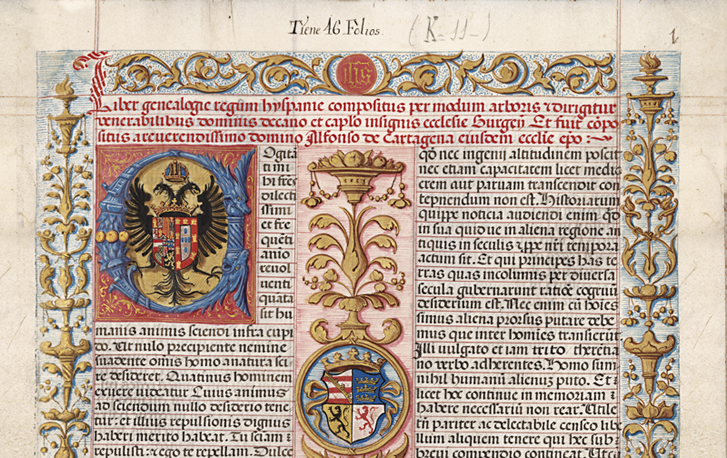 Tiene 16 Folios.
(K=11-)
1
ihs
Liber genealogie regum hyspanie compositus per modum arboris ⁊ dirigitur
venerabilibus dominis decano et caplo insignis ecclesie Burgen̄ Et fuit cōpo
situs a reverendissimo domino Alfonso de Cartagena eiusdem ecclie epo :~
Cogita
ui mi
hi freq̄
dilecti
ssimi
et fre
quēti
anio
revol
uenti
quāta
sit hu
manis animis sciendi infra cupi
do. Ut nulo precipiente nemine
suadente omīs homo a natura sci
re desideret. Quatinus hominem
exuere videatur Cuius animus
ad sciendum nullo desiderio tene
tur: et illius repulsionis dignus
haberi merito habeat. Tu sciam ⁊
repulisti: ⁊ ego te repellam. Dulce
qō nec ingenij altitudinem poscit
nec etiam capacitatem licet medio
crem aut paruam transcendit con
tepnendum non est. Historiarum
quippe noticia audiendi enim qd̄
in sua quidue in aliena regione an
tiquis in seculis ⁊ ppe nr̄i tempora
actum sit. Et qui principes has te
rras quas incolumis per diversa
secula gubernarunt ratiōe cognitū
desiderium est. Nec enim cū hoīes
simus aliena prorsus putare debe
mus que inter homīes transierūt
Illi vulgato et iam trito therēna
no verbo adherentes. Homo sum
nihil humanū alienus puto. Et
licet hoc continue in memoriam
habere necessariū non rear. Utile
tn̄ pariter ac delectabile censeo lib
llum aliquem tenere qui hec sub
brevi compendio contineat. Utcā